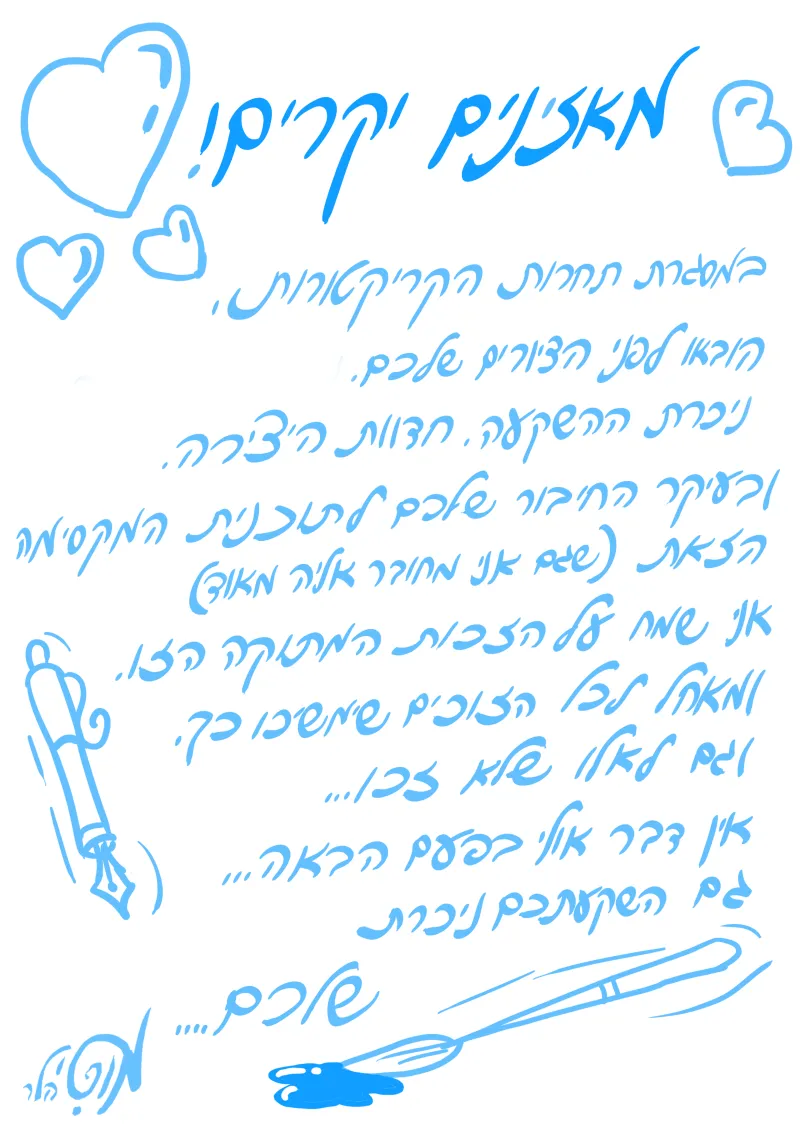 מאזינים יקרים!
במסגרת תחרות הקריקטורות,
הובאו לפני הציורים שלכם.
ניכרת ההשקעה. חדוות היצירה.
ובעיקר החיבור שלכם לתוכנית המקסימה
הזאת (שגם אני מחובר אליה מאוד)
אני שמח על הזכות המתוקה הזו.
ומאחל לכל הזוכים שימשיכו כך.
וגם לאלו שלא זכו...
אין דבר אולי בפעם הבאה...
גם השקעתכם ניכרת
שלכם....
מוטי הלר